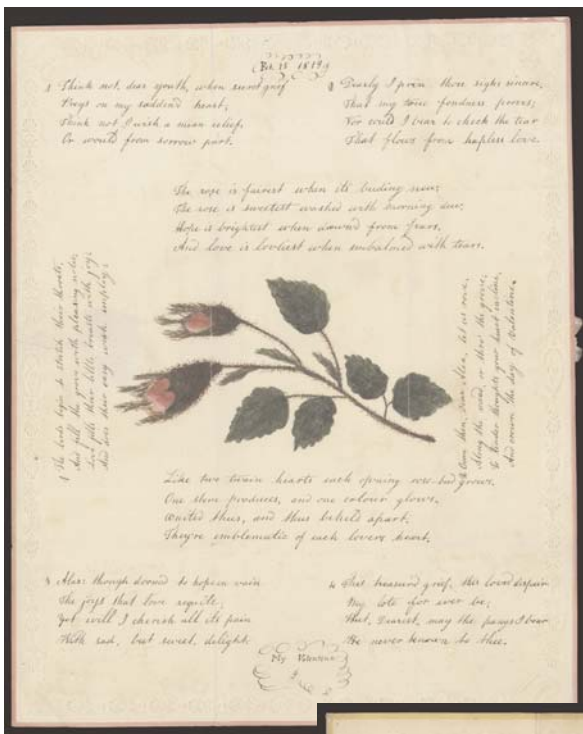 Feb. 15 1819
1 Think not, dear youth, when secret grief
Preys on my saddend heart;
Think not I wish a mean relief,
Or would from sorrow part.
2 Dearly I prize those sighs sincere,
That my true fondness proves;
Nor could I bear to check the tear
That flows from hapless love.
The rose is fairest when its buding new;
The rose is sweetest washed with morning dew;
Hope is brightest when from fears,
And love is lovliest when embalmed with tears.
1 The birds begin to stretch their throats,
And fill the grove with pleasing notes,
Love fills their little breasts with joys
And does their every wish employ:
2 Come then, dear let us rove,
Along the mead, or thro' the grove,
To tender thoughts your heart incline,
And crown the day of Valentine.
Like two twain hearts each opning rose-bud grows.
One stem produces, and one colour glows,
United thus, and thus beheld apart.
They're emblematic of each lovers heart.
3 Alas: though doomd to hope in vain
The joys that love requite;
Yet will I cherish all its pain
With sad, but sweet, delight.
4 This treasurd grief, this lovd despair
My lote for ever be;
But, Dearest, may the pangs I bear
Be never known to thee.
My Valentine